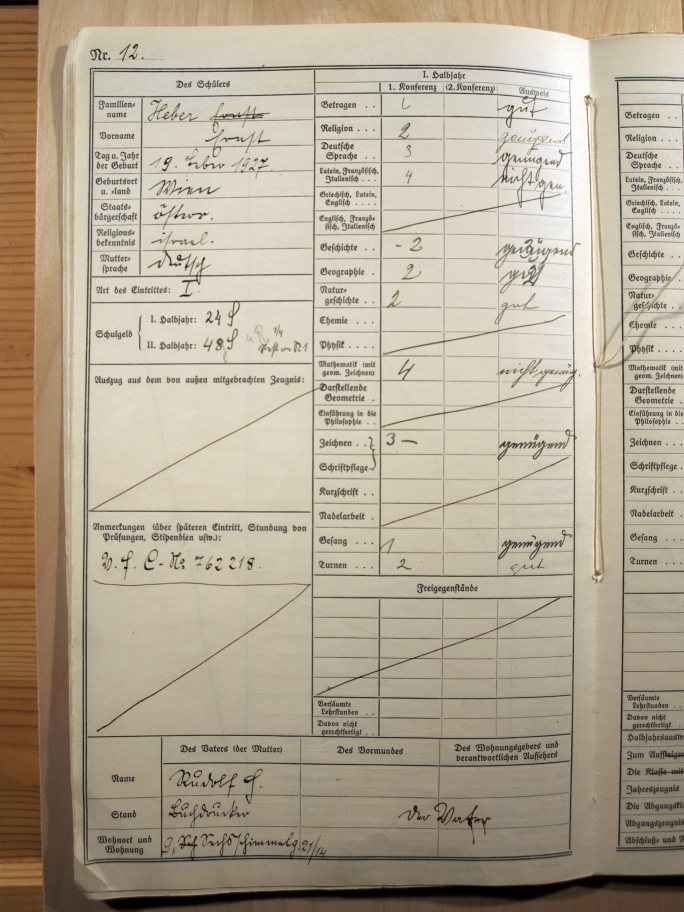 Nr. 12.
Des Schülers
Familien-
name
Heber Ernst
Vorname
Ernst
Tag u. Jahr
der Geburt
19. Feber 1927
Geburtsort
u. -land
Wien
Staats-
bürgerschaft
österr.
Religions-
bekenntnis
israel.
Mutter-
sprache
deutsch
Art des Eintrittes: I.
Schulgeld
I. Halbjahr: 24 S
II. Halbjahr: 48 S
Auszug aus dem von außen mitgebrachten Zeugnis:
Anmerkungen (über späteren Eintritt, Stundung von
Prüfungen, Stipendien usw.):
V. f. C- No 762218.
I. Halbjahr
1. Konferenz (2. Konferenz) Ausweis
Betragen . . 1 gut
Religion . . 2 genügend
Deutsche
Sprache . . 3 genügend
Latein, Französisch,
Italienisch . . . 4 nicht gen.
Griechisch, Latein,
Englisch . . . .
Englisch, Franzö-
sisch, Italienisch
Geschichte . . - 2 genügend
Geographie . 2 gut
Natur-
geschichte . . 2 gut
Chemie . . .
Physik . . . .
Mathematik (mit
geom. Zeichnen) 4 nicht genüg.
Darstellende
Geometrie .
Einführung in die
Philosophie . .
Zeichnen . . 3 – genügend
Schriftpflege
Kurzschrift . .
Nadelarbeit .
Gesang . . . 1 genügend
Turnen . . . 2 gut
Freigegenstände
Versäumte
Lehrstunden . .
Davon nicht
gerechtfertigt . .
Des Vaters (der Mutter) Des Vormundes Des Wohnungsgebers und
verantwortlichen Aufsehers
Name Rudolf H.
Stand Buchdrucker der Vater
Wohnort und
Wohnung
9, Sechsschimmelg. 21/14
Betragen . .
Religion . . .
Deutsche
Sprache . .
Latein, Französisch,
Italienisch . . .
Griechisch, Latein,
Englisch . . .
Englisch, Franzö-
sisch, Italienisch
Geschichte . .
Geographie .
Natur-
geschichte . .
Chemie . . .
Physik . . . .
Mathematik (mit
geom. Zeichnen)
Darstellende
Geometrie .
Einführung in die
Philosophie . .
Zeichnen . . .
Schriftpflege .
Kurzschrift . .
Nadelarbeit .
Gesang . . .
Turnen . . .
Versäumte
Lehrstunden . .
Davon nicht
gerechtfertigt .
Halbjahrsausw
Zum Aufsteigen
Die Klasse mit
Jahreszeugnis
Die Abgangskl
Abgangszeugnis
Abschluß- und R